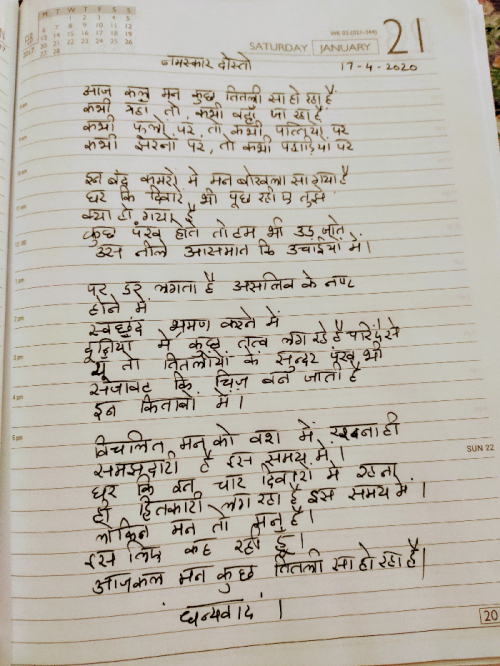 M T W T F S S
1 2 3 4 5
6 7 8 9 10 11 12
13 14 15 16 17 18 19
20 21 22 23 24 25 26
27 28
WK 03 (021-344)
SATURDAY JANUARY 21
नमस्कार दोस्तो 17-4-2020
आज कल मन कुछ तितली सा हो रहा है
कभी यहाँ तो कभी वहाँ जा रहा है
कभी फुलो पर तो कभी पत्तियो पर
कभी झरनो पर, तो कभी पहाड़ियो पर
इन बंद कमरो मे मन बोखला सा गया है
घर कि दिवारे भी पूछ रही है तुझे
क्या हो गया है
कुछ पंख होते तो हम भी उड़ जाते
उस नीले आसमान कि उचाईयो में।
पर डर लगता है असलियत के नष्ट
होने में
स्वछंद भ्रमण करने में
दुनिया में कुछ तत्व लग रहे है
यू तो तितलीयो के सुन्दर पंख भी
सजावट कि चिज़ बन जाती है
इन किताबो में।
विचलित मन को वश में रखना ही
समझदारी है इस समय में।
घर कि इन चार दिवारो मे रहना
ही हितकारी लग रहा है इस समय में।
लेकिन मन तो मनु है।
इस लिए कह रही हूँ।
आजकल मन कुछ तितली सा हो रहा है।
धन्यवाद।
SUN 22
1 pm
2 pm
3 pm
4 pm
5 pm
20